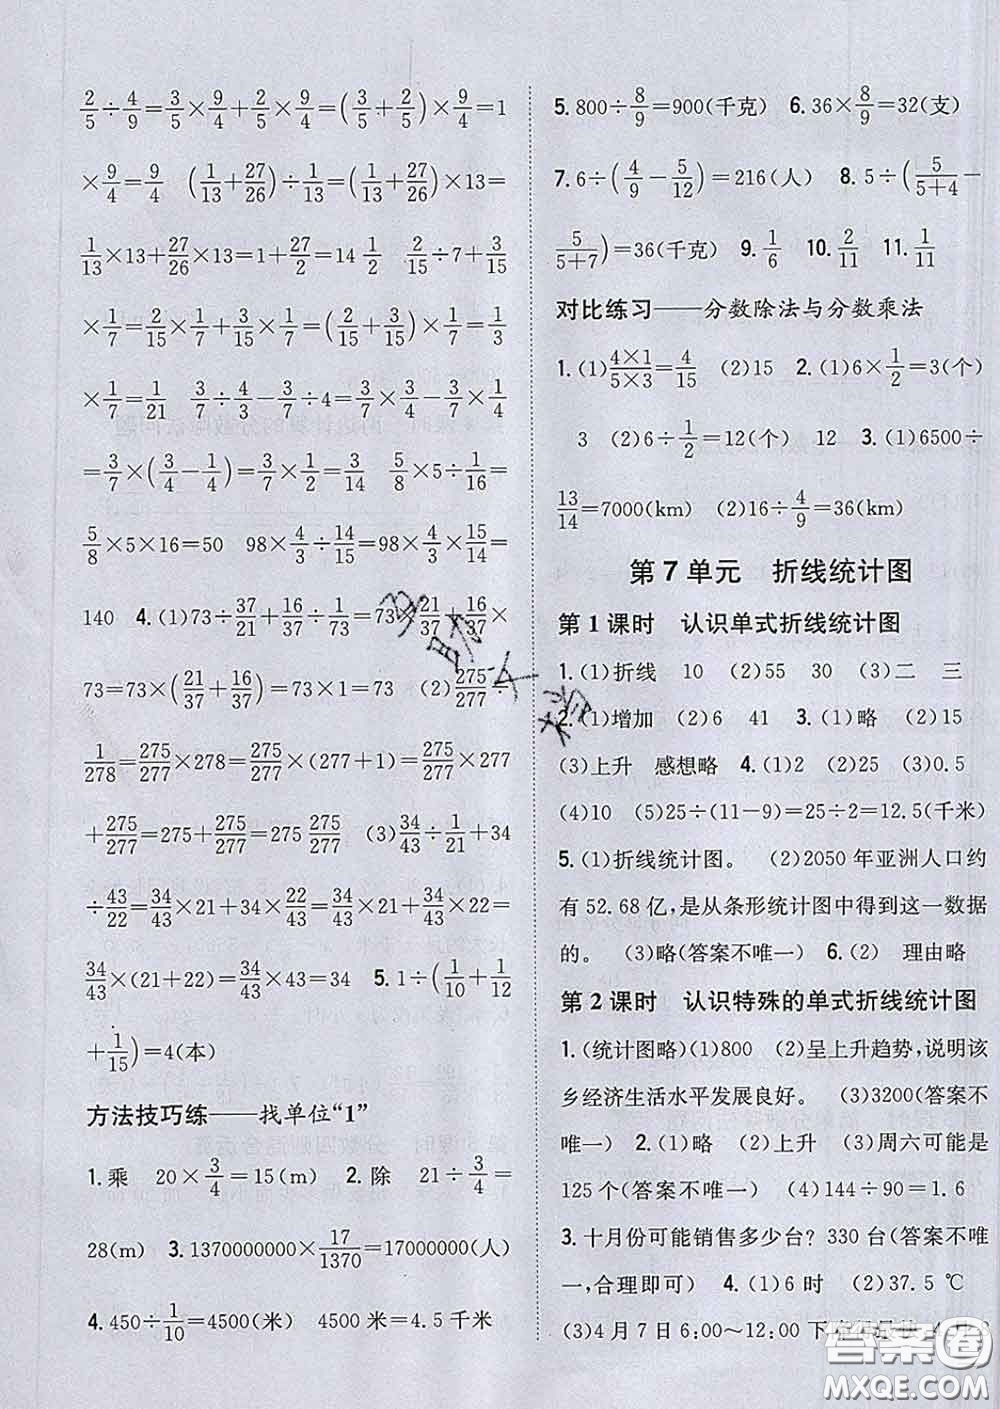 2/5÷4/9=3/5×9/4+2/5×9/4=(3/5+2/5)×9/4=1
×9/4=9/4 (1/13+27/26)÷1/13=(1/13+27/26)×13=
1/13×13+27/26×13=1+27/2=14 1/2 2/15÷7+3/15
×1/7=2/15×1/7+3/15×1/7=(2/15+3/15)×1/7=1/3
×1/7=1/21 3/7÷4/3-1/4×3/7=3/7×3/4-1/4×3/7
=3/7×(3/4-1/4)=3/7×1/2=3/14 5/8×5÷1/16=
5/8×5×16=50 98×4/3÷14/15=98×4/3×15/14=
140 4.(1)73÷37/21+16/37÷1/73=73×21/37+16/37×
73=73×(21/37+16/37)=73×1=73 (2)275/277÷
1/278=275/277×278=275/277×(277+1)=275/277×277
+275/277=275+275/277=275 275/277 (3)34/43÷1/21+34
÷43/22=34/43×21+34×22/43=34/43×21+34/43×22=
34/43×(21+22)=34/43×43=34 5.1÷(1/10+1/12
+1/15)=4(本)
方法技巧练——找单位“1”
1.乘 20×3/4=15(m) 2.除 21÷3/4=
28(m) 3.1370000000×17/1370=17000000(人)
4.450÷1/10=4500(米) 4500米=4.5千米
5.800÷8/9=900(千克) 6.36×8/9=32(支)
7.6÷(4/9-5/12)=216(人) 8.5÷(5/(5+4)-
5/(5+7))=36(千克) 9.1/6 10.2/11 11.1/11
对比练习——分数除法与分数乘法
1.(1)(4×1)/(5×3)=4/15 (2)15 2.(1)6×1/2=3(个)
3 (2)6÷1/2=12(个) 12 3.(1)6500÷
13/14=7000(km) (2)16÷4/9=36(km)
第7单元 折线统计图
第1课时 认识单式折线统计图
1.(1)折线 10 (2)55 30 (3)二 三
2.(1)增加 (2)6 41 3.(1)略 (2)15
(3)上升 感想略 4.(1)2 (2)25 (3)0.5
(4)10 (5)25÷(11-9)=25÷2=12.5(千米)
5.(1)折线统计图。 (2)2050年亚洲人口约
有52.68亿,是从条形统计图中得到这一数据
的。 (3)略(答案不唯一) 6.(2) 理由略
第2课时 认识特殊的单式折线统计图
1.(统计图略)(1)800 (2)呈上升趋势,说明该
乡经济生活水平发展良好。 (3)3200(答案不
唯一) 2.(1)略 (2)上升 (3)周六可能是
125个(答案不唯一) (4)144÷90=1.6
3.十月份可能销售多少台? 330台(答案不唯
一,合理即可) 4.(1)6时 (2)37.5 ℃
(3)4月7日6:00~12:00下
答案圈
MXQE.COM